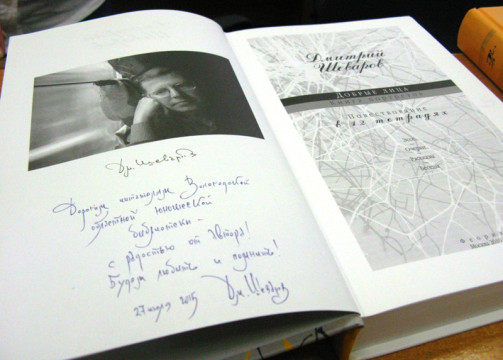 Дм. Шеваров
Дорогим читателям Вологодской
областной юношеской
библиотеки -
с радостью от автора!
Будем любить и помнить!
27 2015 Дм. Шеваров
Дмитрий
Шеваров
Добрые лица
Книга портретов
Повествование
в 12 тетрадях
Очерки
Феория